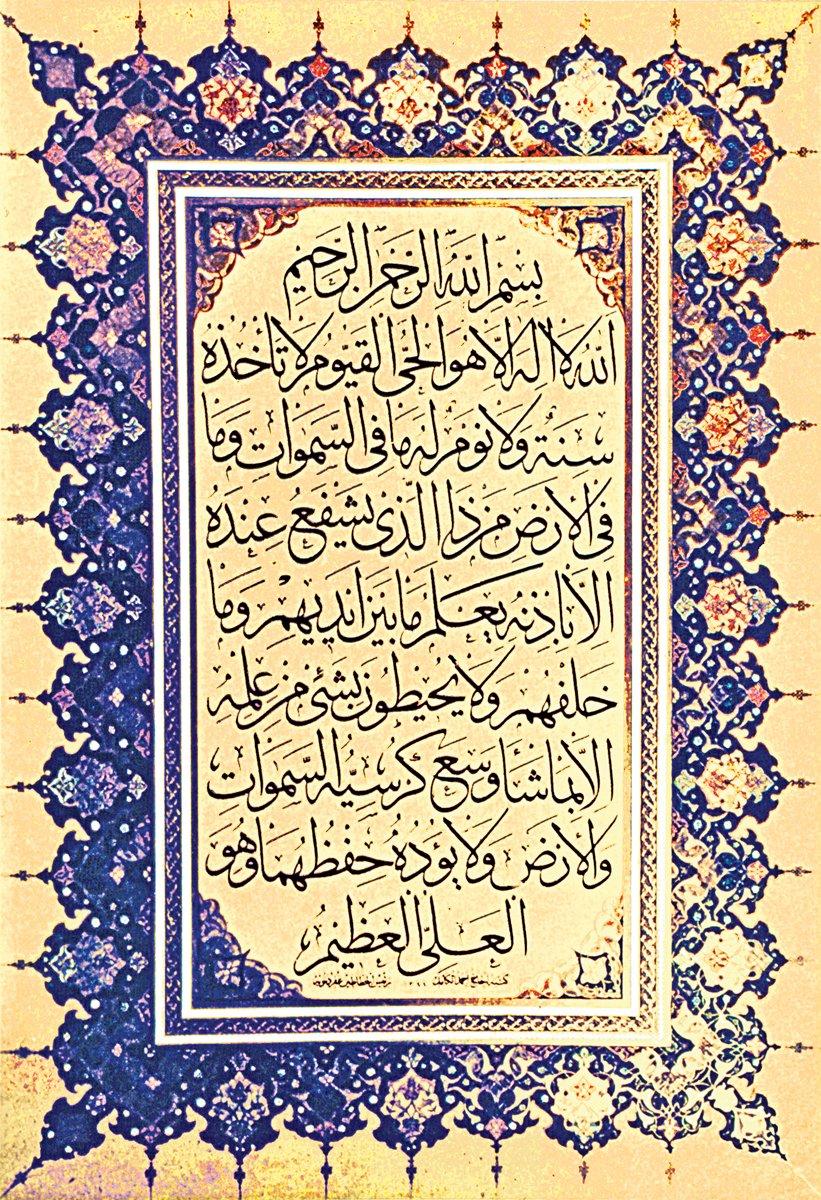 بسم الله الرحمن الرحيم
الله لا اله الا هو الحي القيوم لا تأخذه
سنة ولا نوم له ما في السموات وما
في الارض من ذا الذي يشفع عنده
الا باذنه يعلم ما بين ايديهم وما
خلفهم ولا يحيطون بشئ من علمه
الا بما شاء وسع كرسيه السموات
والارض ولا يؤده حفظهما وهو
العلي العظيم